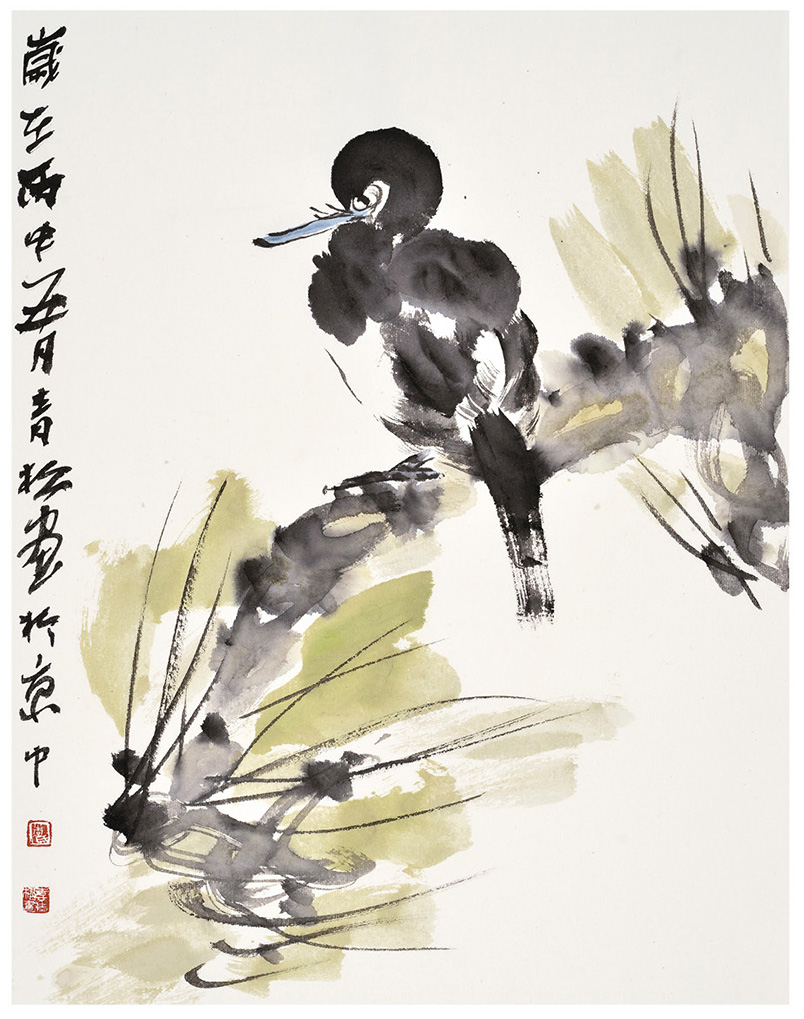 歲在丙申五月青松畫於京中